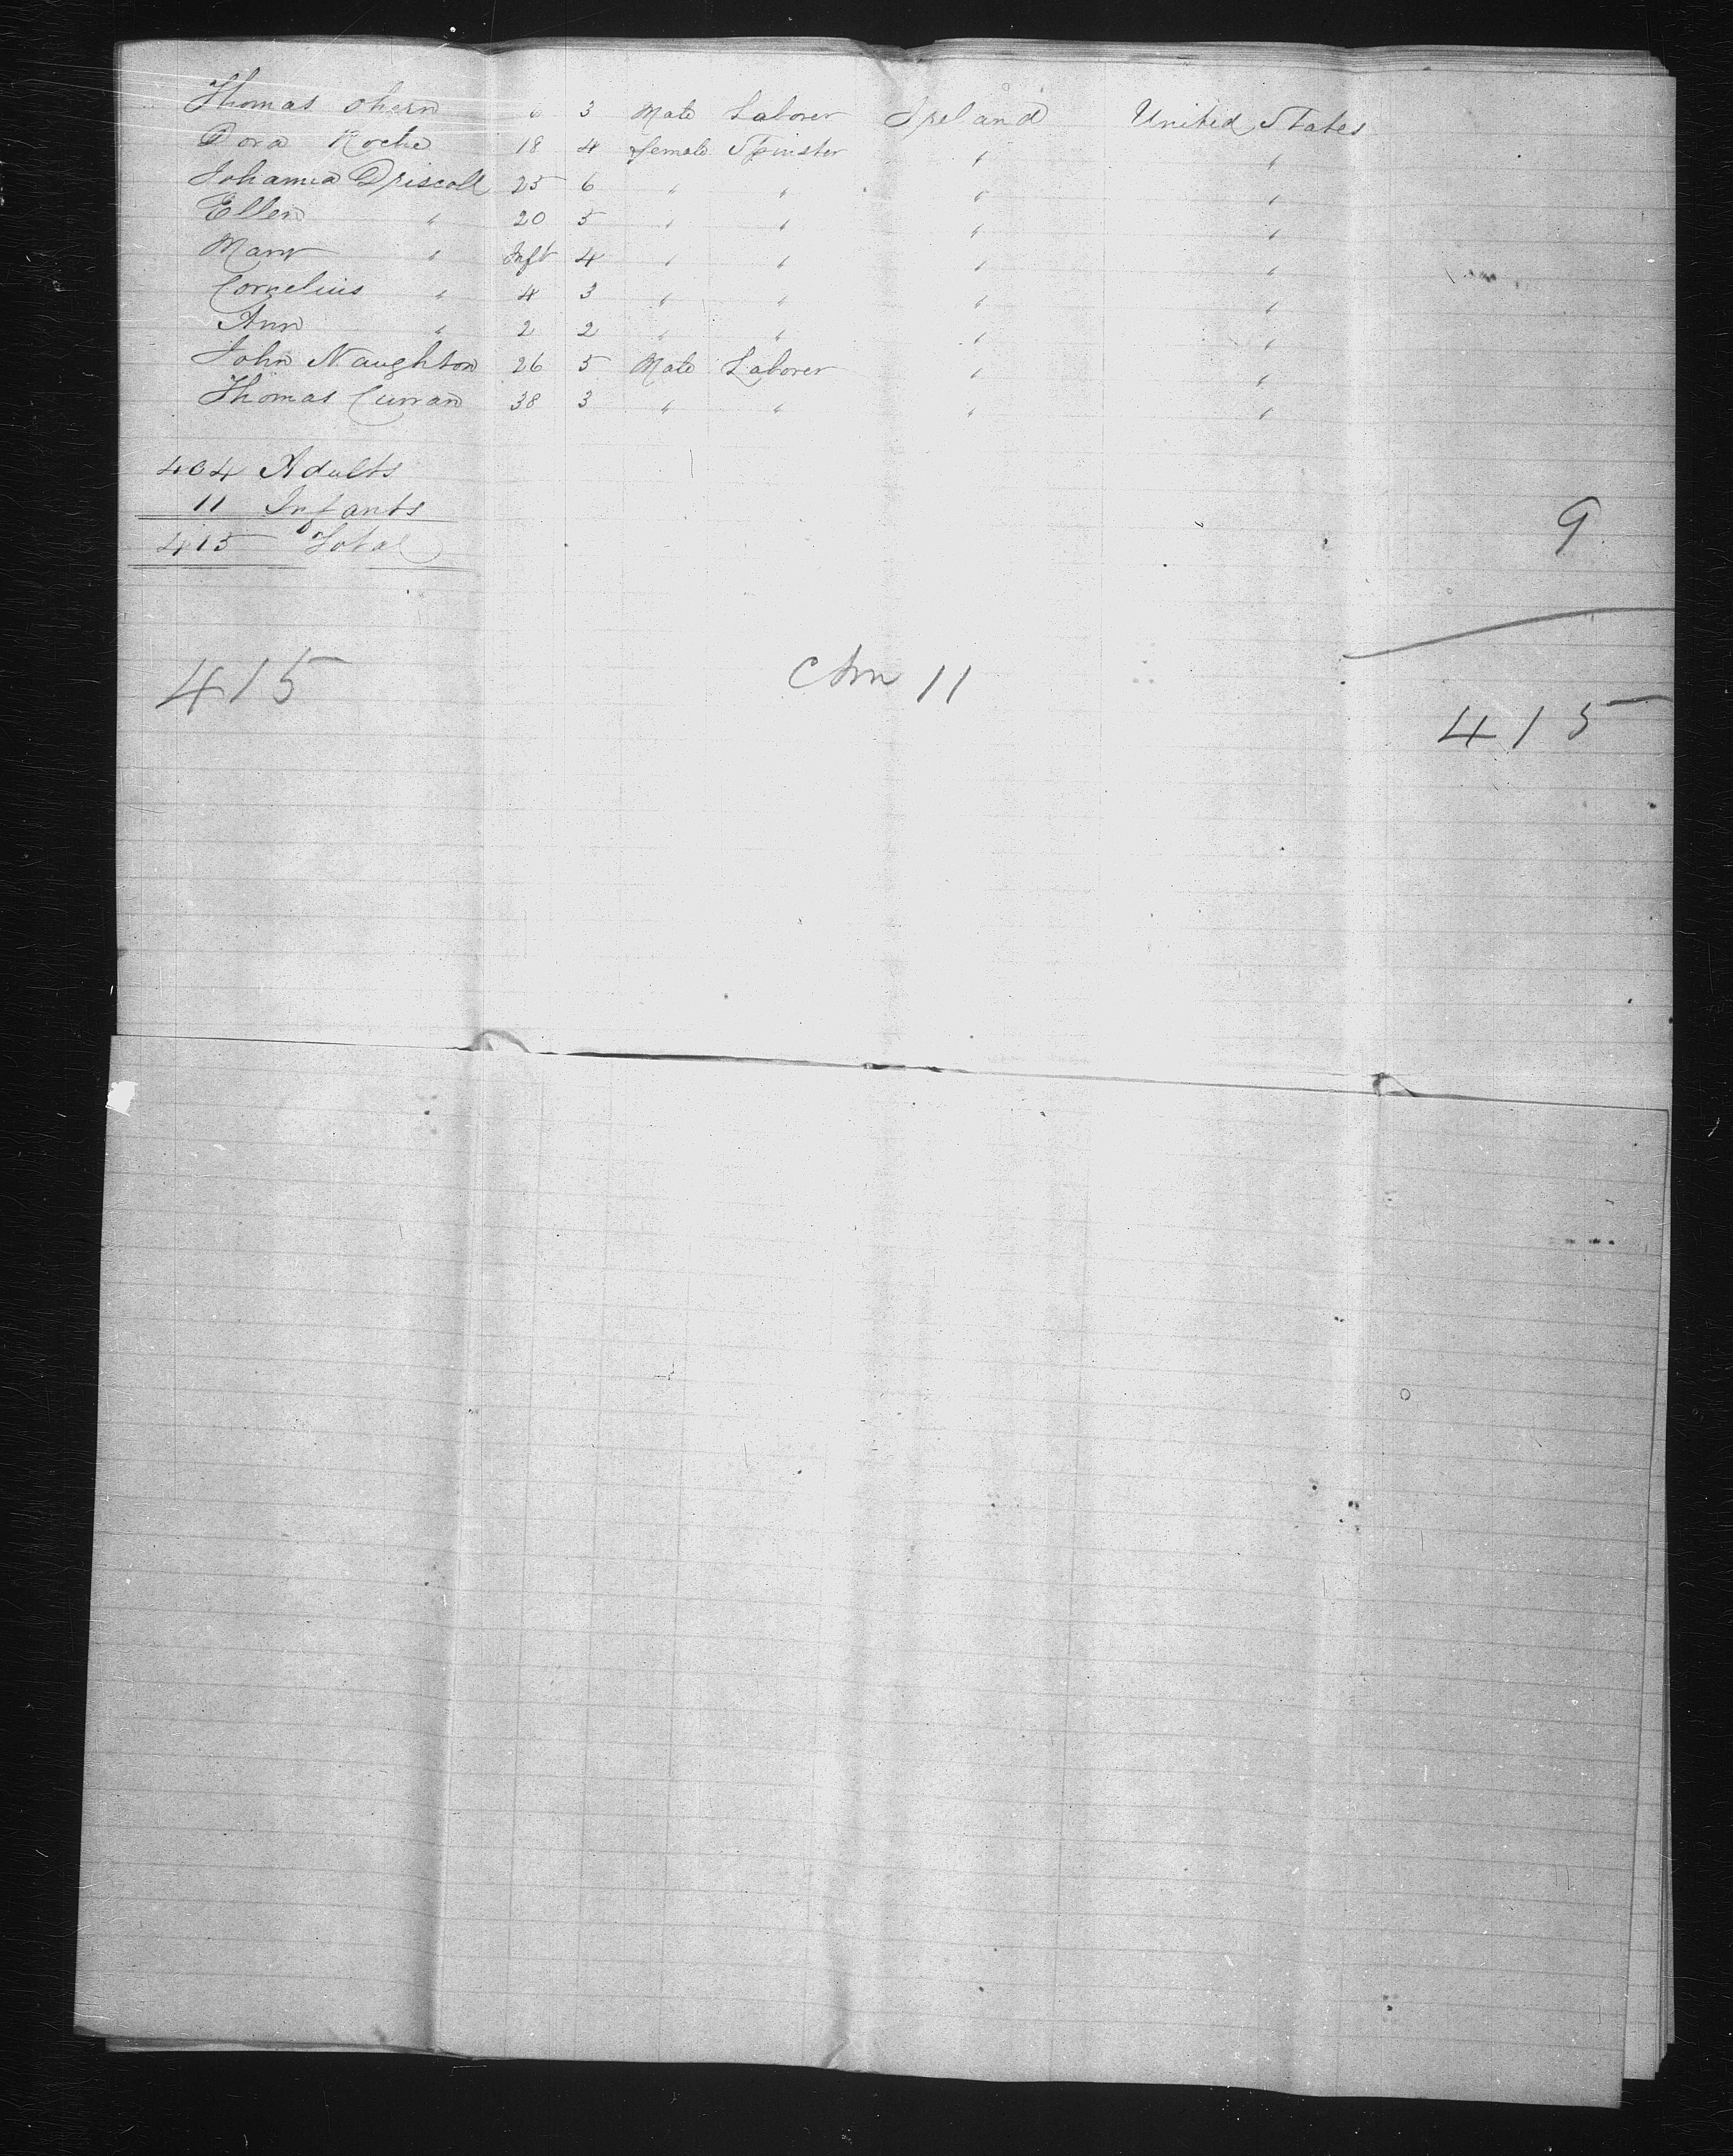 Thomas Ohern 6 3 Male Laborer Ireland United States
Dora Roche 18 4 female Spinster " "
Johanna Driscoll 25 6 " " " "
Ellen " 20 5 " " " "
Mary " Inft 4 " " " "
Cornelius " 4 3 " " " "
Ann " 2 2 " " " "
John Naughton 26 5 Male Laborer " "
Thomas Curran 38 3 " " " "
404 Adults
11 Infants
415 Total
9
415
11
415